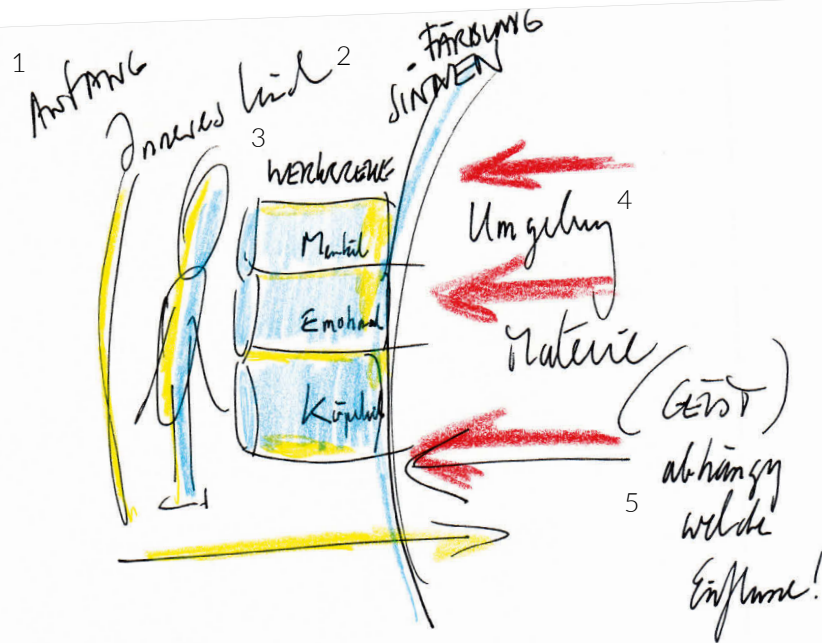 1
ANFANG
Inneres Kind
2
FÄRBUNG
SINNEN
3
WERKZEUGE
Mental
Emotional
Körperlich
4
Umgebung
Materie
(GEIST)
5
abhängig
welche
Einflüsse!